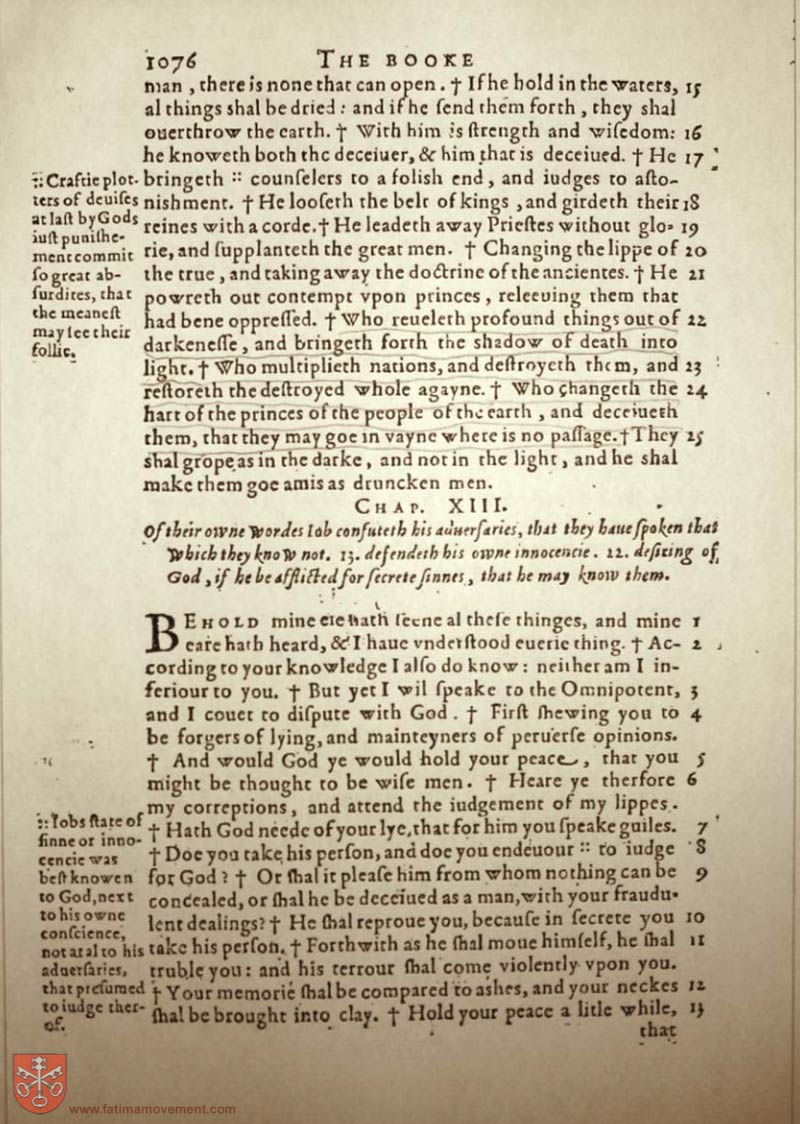 1076 THE BOOKE
man, there is none that can open. † If he hold in the waters, 15
al things shal be dried: and if he ſend them forth, they shal
ouerthrow the earth. † With him is ſtrength and wiſedom: 16
he knoweth both the deceiuer, & him that is deceiued. † He 17
bringeth :: counſelers to a foliſh end, and iudges to aſto-
nishment. † He looſeth the belt of kings, and girdeth their 18
reines with a corde. † He leadeth away Prieſtes without glo- 19
rie, and ſupplanteth the great men. † Changing the lippe of 20
the true, and taking away the doctrine of the ancientes. † He 21
powreth out contempt vpon princes, releeuing them that
had bene oppreſſed. † Who reueleth profound things out of 22
darkeneſſe, and bringeth forth the shadow of death into
light. † Who multiplieth nations, and deſtroyeth them, and 23
reſtoreth the deſtroyed whole agayne. † Who changeth the 24
hart of the princes of the people of the earth, and deceiueth
them, that they may goe in vayne where is no paſſage. † They 25
shal grope as in the darke, and not in the light, and he shal
make them goe amis as druncken men.
:: Craftie plot-
ters of deuiſes
at laſt by Gods
iuſt puniſhe-
ment commit
ſo great ab-
ſurdites, that
the meaneſt
may ſee their
follie.
CHAP. XIII.
Of their owne wordes Iob confuteth his aduerſaries, that they haue ſpoken that
which they know not. 13. defendeth his owne innocencie. 22. deſiring of
God, if he be afflicted for ſecrete ſinnes, that he may know them.
BEHOLD mine eie hath ſeene al theſe thinges, and mine 1
eare hath heard, & I haue vnderſtood euerie thing. † Ac- 2
cording to your knowledge I alſo do know: neither am I in-
feriour to you. † But yet I wil ſpeake to the Omnipotent, 3
and I couet to diſpute with God. † Firſt shewing you to 4
be forgers of lying, and mainteyners of peruerſe opinions.
† And would God ye would hold your peace, that you 5
might be thought to be wiſe men. † Heare ye therfore 6
my correptions, and attend the iudgement of my lippes.
† Hath God neede of your lye, that for him you ſpeake guiles. 7
† Doe you take his perſon, and doe you endeuour :: to iudge 8
for God? † Or shal it pleaſe him from whom nothing can be 9
concealed, or shal he be deceiued as a man, with your fraudu-
lent dealings? † He shal reproue you, becauſe in ſecrete you 10
take his perſon. † Forthwith as he shal moue himſelf, he shal 11
truble you: and his terrour shal come violently vpon you.
† Your memorie shal be compared to ashes, and your neckes 12
shal be brought into clay. † Hold your peace a litle while, 13
that
:: Iobs ſtate of
ſinne or inno-
cencie was
beſt knowen
to God, next
to his owne
conſcience,
not at al to his
aduerſaries,
that preſumed
to iudge ther-
of.
www.fatimamovement.com